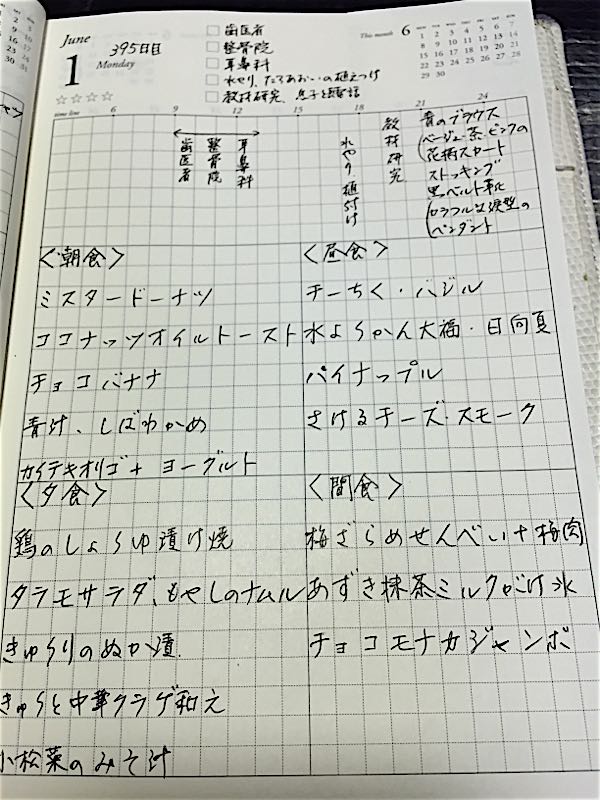 June
1
Monday
395日目
☆☆☆☆
□ 歯医者
□ 整骨院
□ 耳鼻科
□ 水やり、たちあおいの植えつけ
□ 教材研究、息子と電話
This month 6
MON TUE WED THU FRI SAT SUN
1 2 3 4 5 6 7
8 9 10 11 12 13 14
15 16 17 18 19 20 21
22 23 24 25 26 27 28
29 30
time line 6 9 12 15 18 21 24
歯医者
整骨院
耳鼻科
水やり・植付け
教材研究
青のブラウス
ベージュ・茶・ピンクの
花柄スカート
ストッキング
黒ベルト革靴
カラフルな涙型の
ペンダント
<朝食>
ミスタードーナツ
ココナッツオイルトースト
チョコバナナ
青汁、しばわかめ
カイテキオリゴ+ヨーグルト
<昼食>
チーちく・バジル
水ようかん大福・日向夏
パイナップル
さけるチーズ・スモーク
<夕食>
鶏のしょうゆ漬け焼
タラモサラダ、もやしのナムル
きゅうりのぬか漬
きゅうと中華クラゲ和え
小松菜のみそ汁
<間食>
梅ざらめせんべい+梅肉
あずき抹茶ミルクがけ氷
チョコモナカジャンボ